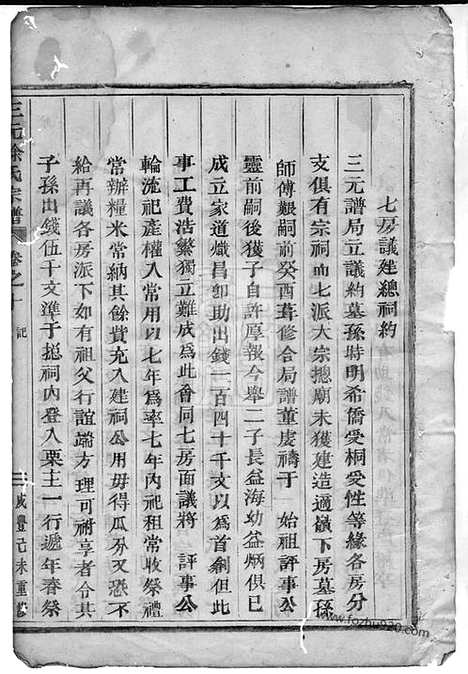 七房議建總祠約
三元譜局立議約墓孫時明希僑受桐受性等緣各房分
支俱有宗祠而七派大宗摠廟未獲建造適嶺下房墓孫
師傅艱嗣前癸酉葺修合局譜董虔禱于 始祖評事公
靈前嗣後獲子自許厚報今舉二子長益海幼益炳俱已
成立家道熾昌卽助出錢一百四十千文以爲首剏但此
事工費浩繁獨立難成爲此會同七房面議將 評事公
輪流祀產權入常用以七年爲率七年內祀租常收祭禮
常辦糧米常納其餘費充入建祠公用毋得瓜分又恐不
給再議各房派下如有祖父行誼端方理可祔享者令其
子孫出錢伍千文準于摠祠內登入栗主一行遞年春祭
三元徐氏宗譜 卷之一 記 三 咸豐己未重修
www.fozhu920.com